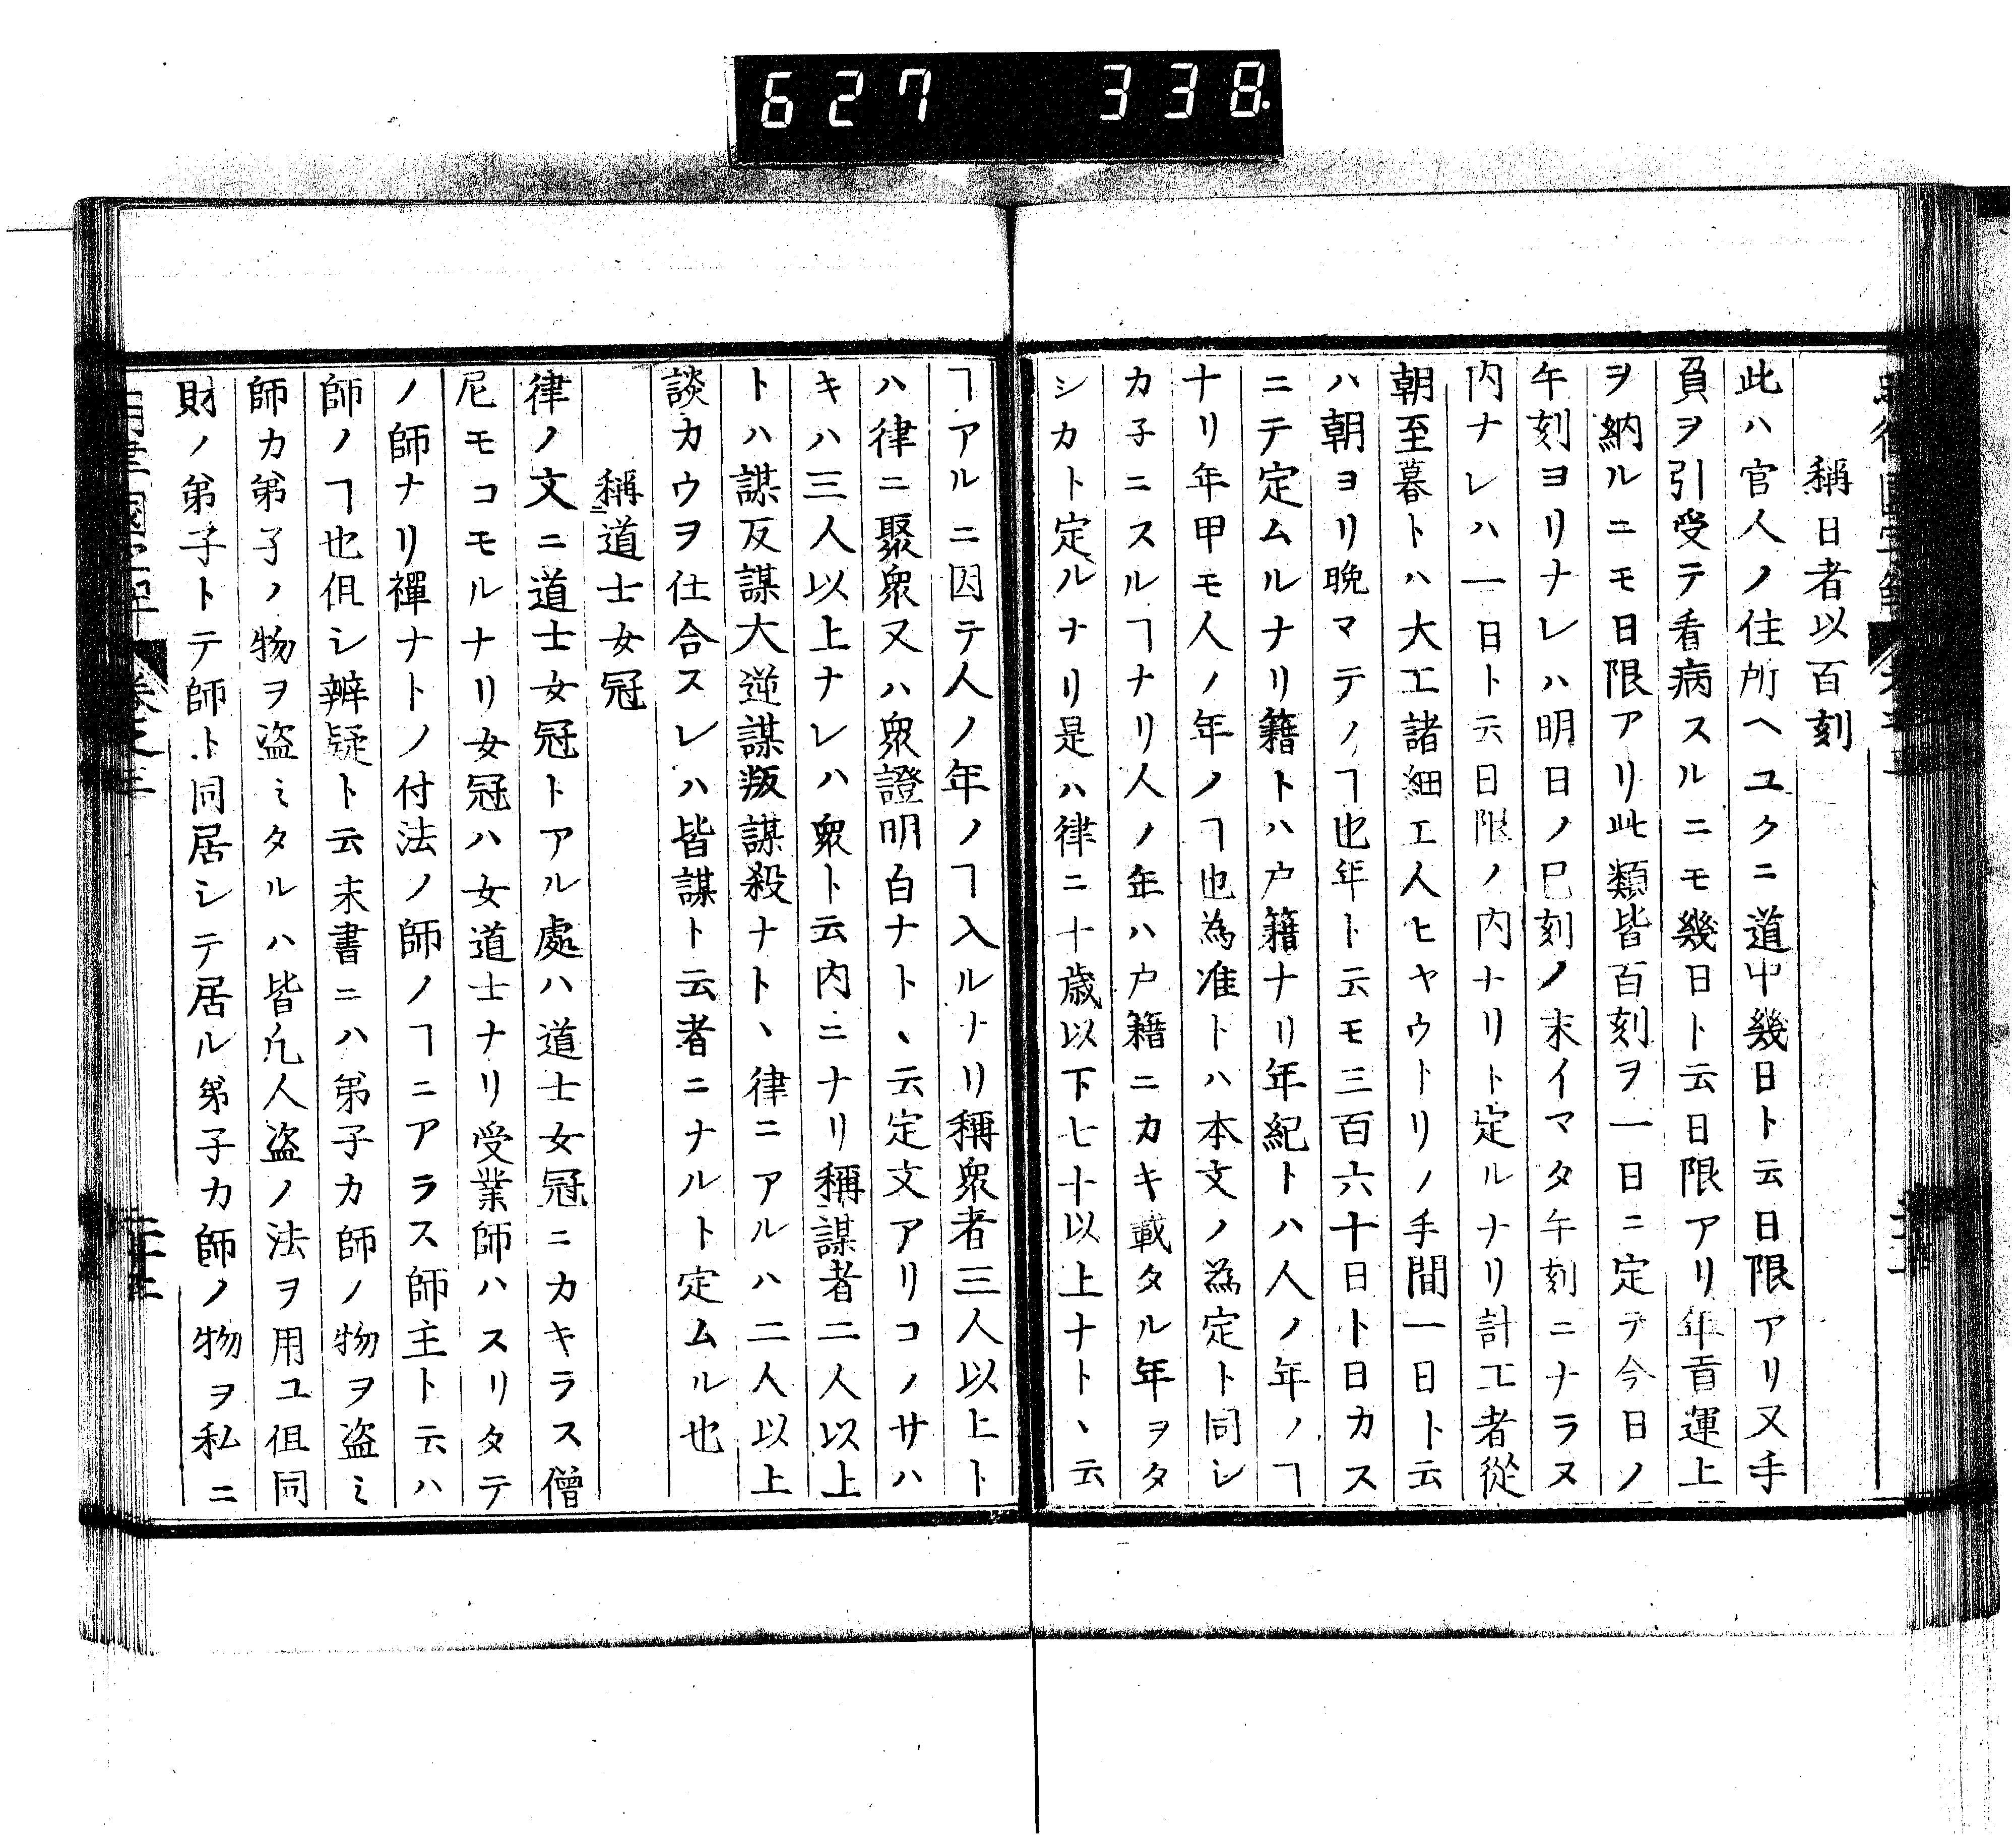 627 338.
稱日者以百刻
此ハ官人ノ住所ヘユクニ道中幾日ト云日限アリ又手
負ヲ引受テ看病スルニモ幾日ト云日限アリ年貢運上
ヲ納ルニモ日限アリ此類皆百刻ヲ一日ニ定テ今日ノ
午刻ヨリナレハ明日ノ巳刻ノ末イマタ午刻ニナラヌ
内ナレハ一日ト云日限ノ内ナリト定ルナリ計工者從
朝至暮トハ大工諸細工人ヒヤウトリノ手間一日ト云
ハ朝ヨリ晩マテノヿ也年ト云モ三百六十日ト日カス
ニテ定ムルナリ籍トハ户籍ナリ年紀トハ人ノ年ノヿ
ナリ年甲モ人ノ年ノヿ也為准トハ本文ノ為定ト同シ
カ子ニスルヿナリ人ノ年ハ户籍ニカキ載タル年ヲタ
シカト定ルナリ是ハ律ニ十歳以下七十以上ナトヽ云
ヿアルニ因テ人ノ年ノヿ入ルナリ稱衆者三人以上ト
ハ律ニ聚衆又ハ衆證明白ナトヽ云定文アリコノサハ
キハ三人以上ナレハ衆ト云内ニナリ稱謀者二人以上
トハ謀反謀大逆謀叛謀殺ナトヽ律ニアルハ二人以上
談カウヲ仕合スレハ皆謀ト云者ニナルト定ムル也
稱道士女冠
律ノ文ニ道士女冠トアル處ハ道士女冠ニカキラス僧
尼モコモルナリ女冠ハ女道士ナリ受業師ハスリタテ
ノ師ナリ禪ナトノ付法ノ師ノヿニアラス師主ト云ハ
師ノヿ也伹シ辨疑ト云末書ニハ弟子カ師ノ物ヲ盗ミ
師カ弟子ノ物ヲ盗ミタルハ皆凢人盗ノ法ヲ用ユ伹同
財ノ弟子トテ師ト同居シテ居ル弟子カ師ノ物ヲ私ニ